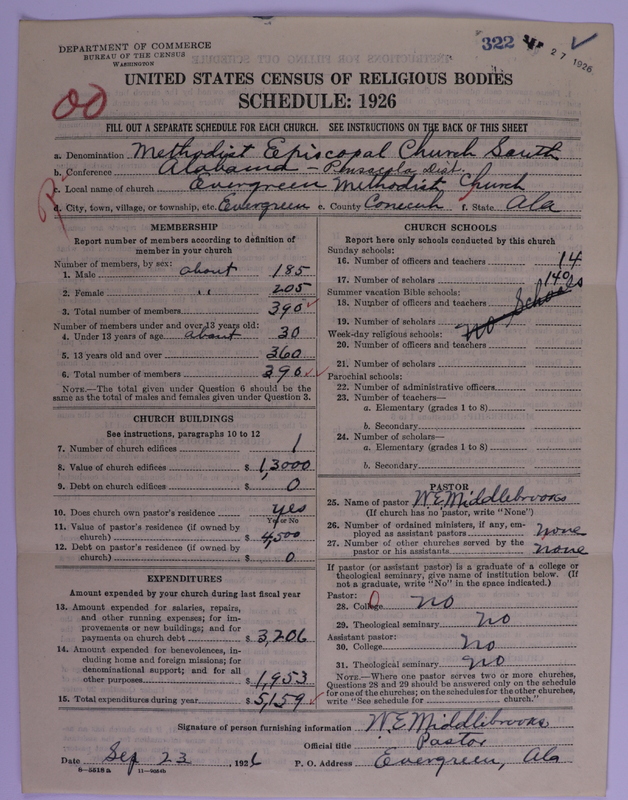 322 27 1926
DEPARTMENT OF COMMERCE
BUREAU OF THE CENSUS
WASHINGTON
UNITED STATES CENSUS OF RELIGIOUS BODIES
SCHEDULE: 1926
00
FILL OUT A SEPARATE SCHEDULE FOR EACH CHURCH. SEE INSTRUCTIONS ON THE BACK OF THIS SHEET
a. Denomination Methodist Episcopal Church South
b. Conference Alabama - Pensacola Dist.
c. Local name of church Evergreen Methodist Church
d. City, town, village, or township, etc. Evergreen e. County Conecuh f. State Ala
MEMBERSHIP
Report number of members according to definition of
member in your church
Number of members, by sex:
1. Male about 185
2. Female " 205
3. Total number of members 390
Number of members under and over 13 years old:
4. Under 13 years of age about 30
5. 13 years old and over 360
6. Total number of members 390
NOTE.—The total given under Question 6 should be the
same as the total of males and females given under Question 3.
CHURCH BUILDINGS
See instructions, paragraphs 10 to 12
7. Number of church edifices 1
8. Value of church edifices $ 13000
9. Debt on church edifices $ 0
10. Does church own pastor's residence yes
Yes or No
11. Value of pastor's residence (if owned by
church) $ 4,500
12. Debt on pastor's residence (if owned by
church) $ 0
EXPENDITURES
Amount expended by your church during last fiscal year
13. Amount expended for salaries, repairs,
and other running expenses; for im-
provements or new buildings; and for
payments on church debt $ 3,206
14. Amount expended for benevolences, in-
cluding home and foreign missions; for
denominational support; and for all
other purposes $ 1,953
15. Total expenditures during year $ 5,159
CHURCH SCHOOLS
Report here only schools conducted by this church
Sunday schools:
16. Number of officers and teachers 14
17. Number of scholars 140
Summer vacation Bible schools:
18. Number of officers and teachers
19. Number of scholars No Schools
Week-day religious schools:
20. Number of officers and teachers
21. Number of scholars
Parochial schools:
22. Number of administrative officers
23. Number of teachers—
a. Elementary (grades 1 to 8)
b. Secondary
24. Number of scholars—
a. Elementary (grades 1 to 8)
b. Secondary
PASTOR
25. Name of pastor W.E. Middlebrooks
(If church has no pastor, write "None")
26. Number of ordained ministers, if any, em-
ployed as assistant pastors none
27. Number of other churches served by the
pastor or his assistants none
If pastor (or assistant pastor) is a graduate of a college or
theological seminary, give name of institution below. (If
not a graduate, write "No" in the space indicated.)
Pastor:
28. College 0 no
29. Theological seminary no
Assistant pastor:
30. College no
31. Theological seminary no
NOTE.—Where one pastor serves two or more churches,
Questions 28 and 29 should be answered only on the schedule
for one of the churches; on the schedules for the other churches,
write "See schedule for church."
Signature of person furnishing information W.E. Middlebrooks
Official title Pastor
Date Sep 23, 1926 P. O. Address Evergreen, Ala